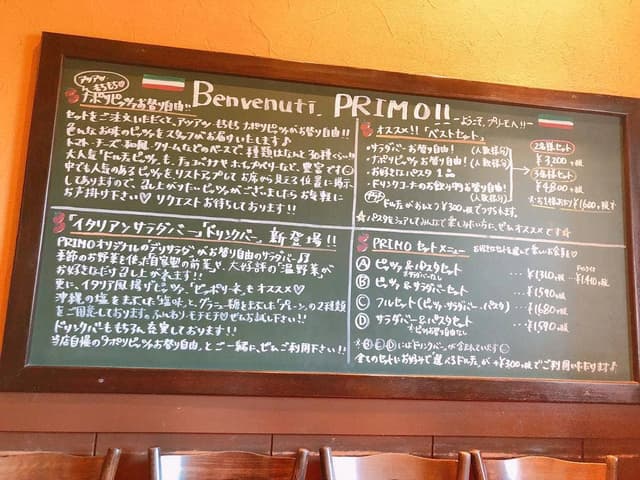 アツアツ
もちもち♡
ナポリピッツァお替り自由!!
Benvenuti. PRIMO!!
ーようこそ、プリーモへ!!ー
セットをご注文いただくと、アツアツ・もちもちナポリピッツァがお替り自由!!
色んなお味のピッツァをスタッフがお届けいたします♪
トマト・チーズ・和風・クリームなどのベースで、種類はなんと30種くらい!!
大人気「ドルチェピッツァ」も、チョコバナナやホイップベリーなど、豊富です
中でも人気のあるピッツァをリストアップしてお席から見える位置に掲示
しておりますので、召し上がりたいピッツァがございましたらお気軽に
お声掛け下さい♡ リクエストお待ちしております!!
オススメ!!「ベストセット」
・サラダバーお替り自由! (人数様分)
・ナポリピッツァお替り自由! (人数様分)
・お好きなパスタ 1皿
・ドリンクコーナのお飲み物お替り自由!
(人数様分)
ドルチェがおひとつ¥300+税でつけられます。
2名様セット
¥3,200+税
3名様セット
¥4,800+税
※お1様あたり¥1,600+税で
☆パスタをシェアしてみんなで楽しみたい方に、ぜひオススメです☆
「イタリアンサラダバー」・「ドリンクバー」新登場!!
PRIMOオリジナルのデリサラダがお替り自由のサラダバー♪
季節のお野菜を使った自家製の前菜や、大好評の「温野菜」が
お好きなだけ召し上がれます!!
更に、イタリア風揚げピッツァ「ゼッポリーネ」もオススメ♡
沖縄の塩をまぶした「塩味」と、グラニュー糖をまぶした「プレーン」の2種類
をご用意しております。ふんわりモチモチ♡ぜひお試し下さい!!
ドリンクバーももちろん充実しております!!
当店自慢の「ナポリピッツァお替り自由」とご一緒に、ぜひご利用下さい!!
PRIMO セットメニュー
お好きなセットを選んで楽しいお食事を♡
Ⓐ ピッツァ&パスタセット …¥1,310+税 …¥1,410+税
Ⓑ ピッツァ&サラダバーセット …¥1,590+税
Ⓒ フルセット(ピッツァ・サラダバー・パスタ) …¥1,680+税
Ⓓ サラダバー&パスタセット …¥1,590+税
※ピッツァお替り自由なし
※ⒷⒸⒹにはドリンクバーが含まれています
全てのセットにお好みで選べるドルチェが+¥300+税でご利用いただけます♪